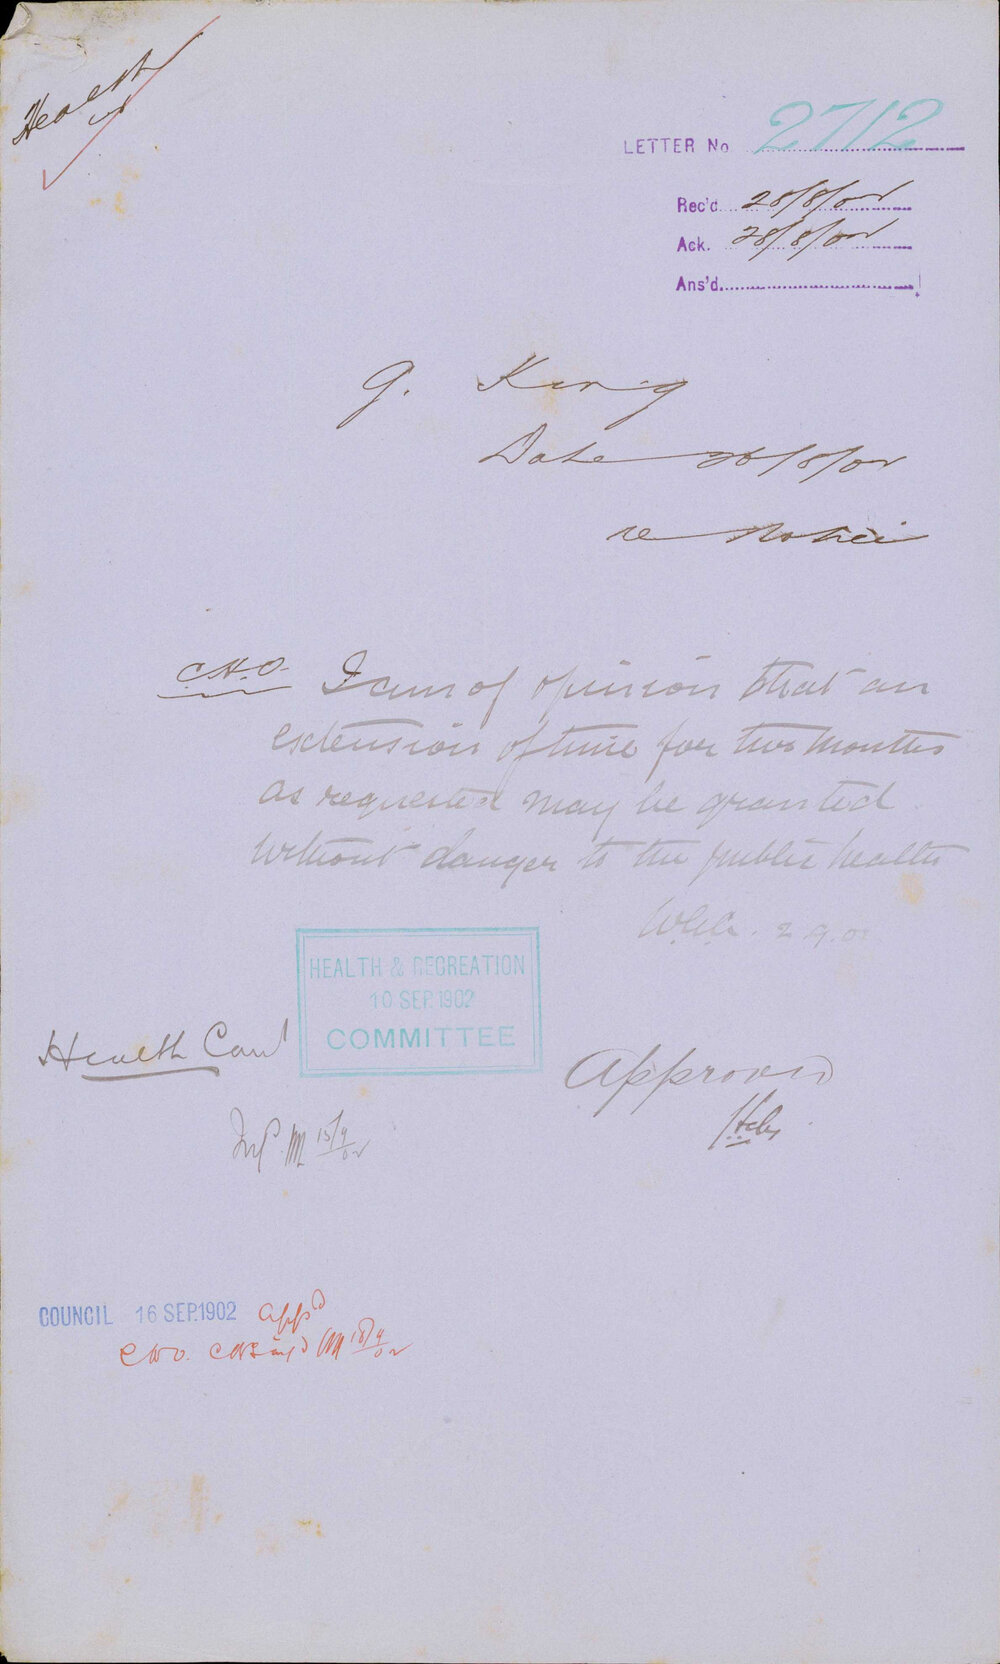 Health
LETTER No 2712
Rec'd 28/8/02
Ack. 28/8/02
Ans'd
G. King
Date 26/8/02
re Notice
C.H.O. I am of opinion that an
extension of time for two months
as requested may be granted
without danger to the public health
2.9.02
HEALTH & RECREATION
10 SEP. 1902
COMMITTEE
Health Com
Approved
15/9/02
COUNCIL 16 SEP. 1902 appd
18/9/02